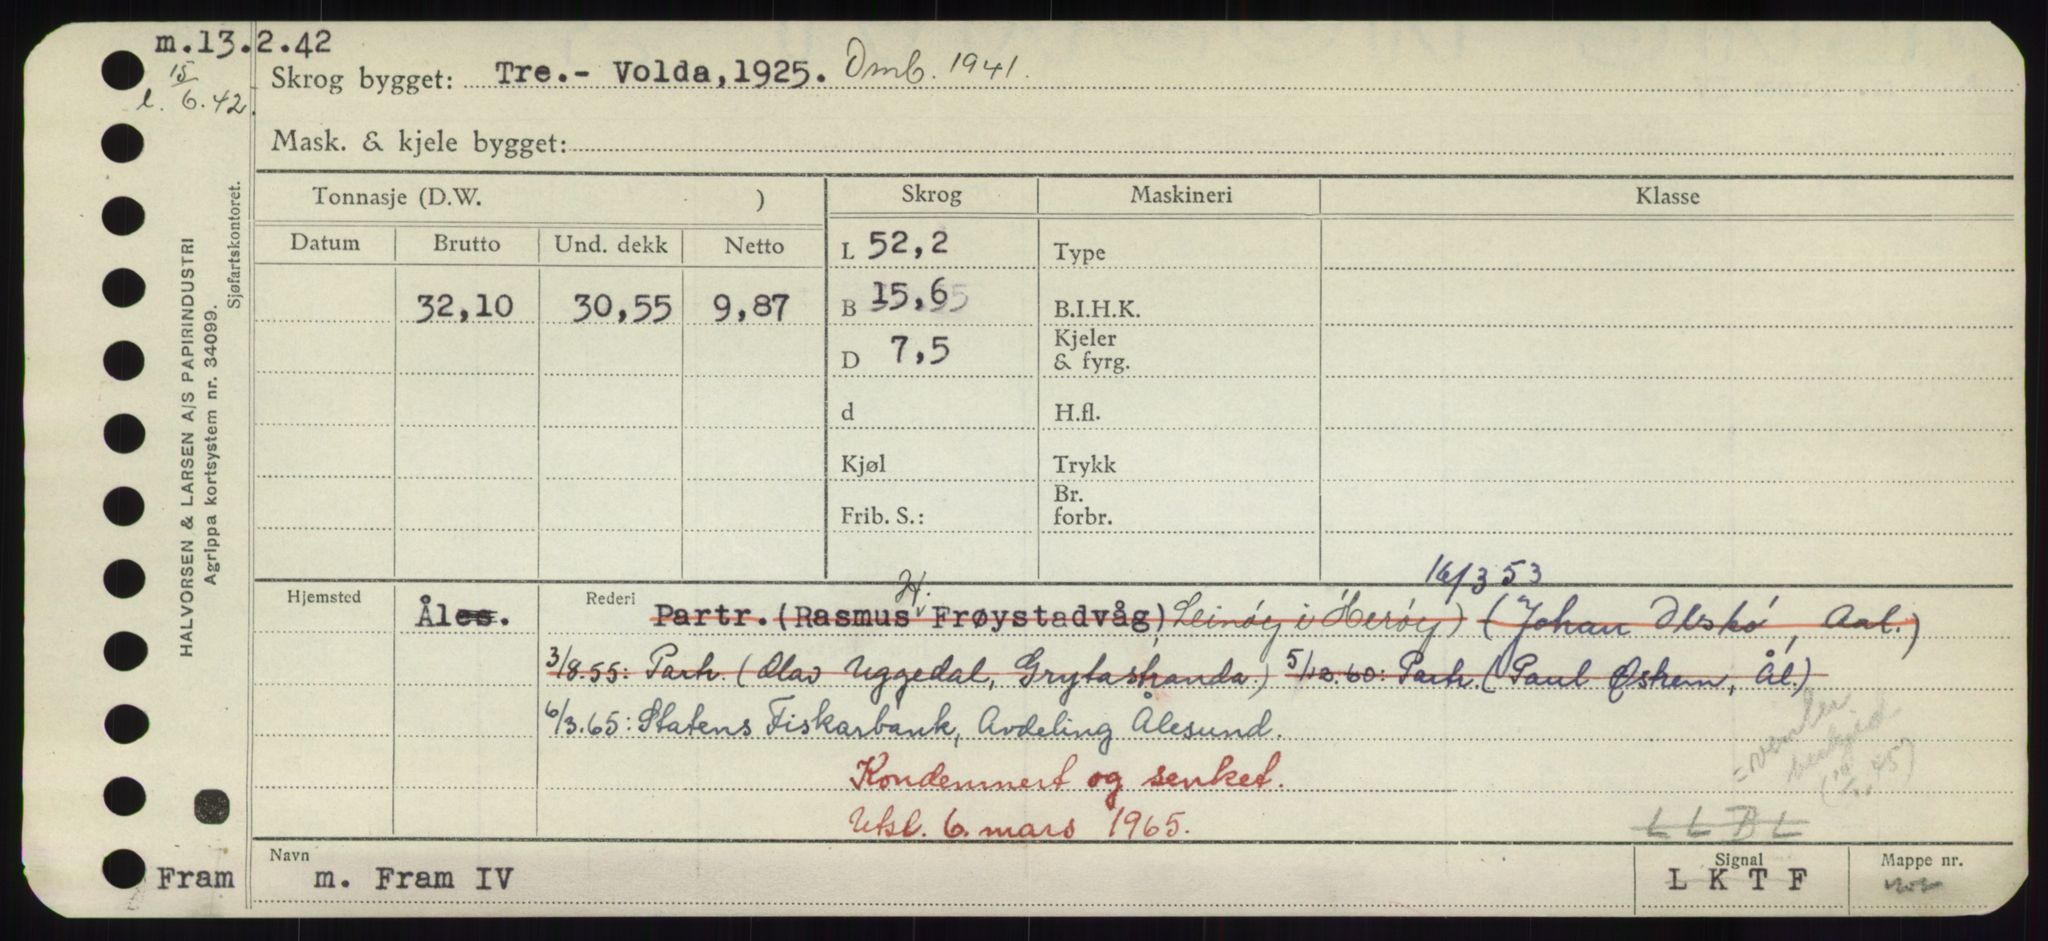 m.13.2.42
15
l. 6.42.
Skrog bygget: Tre.- Volda,1925. Omb. 1941.
Mask. & kjele bygget:
Tonnasje (D.W. )
Skrog
Maskineri
Klasse
Datum
Brutto
Und. dekk
Netto
L 52,2
Type
32,10
30,55
9,87
B 15,65
B.I.H.K.
D 7,5
Kjeler
& fyrg.
d
H.fl.
Kjøl
Trykk
Frib. S.:
Br.
forbr.
16/3 53
Hjemsted
Åles.
Rederi
Partr. (Rasmus H. Frøystadvåg) Leinøy i Herøy) (Johan Olskø, Aal.)
3/8.55: Partr. (Olav Uggedal, Grytastranda.) 5/12.60: Partr. (Paul Østrem, Ål.)
6/3.65: Statens Fiskarbank, Avdeling Ålesund.
Kondemnert og senket.
Utsl. 6. mars 1965.
LLBL
Navn
Signal
Mappe nr.
Fram
m. Fram IV
LKTF
HALVORSEN & LARSEN A/S PAPIRINDUSTRI
Agrippa kortsystem nr. 34099.
Sjøfartskontoret.